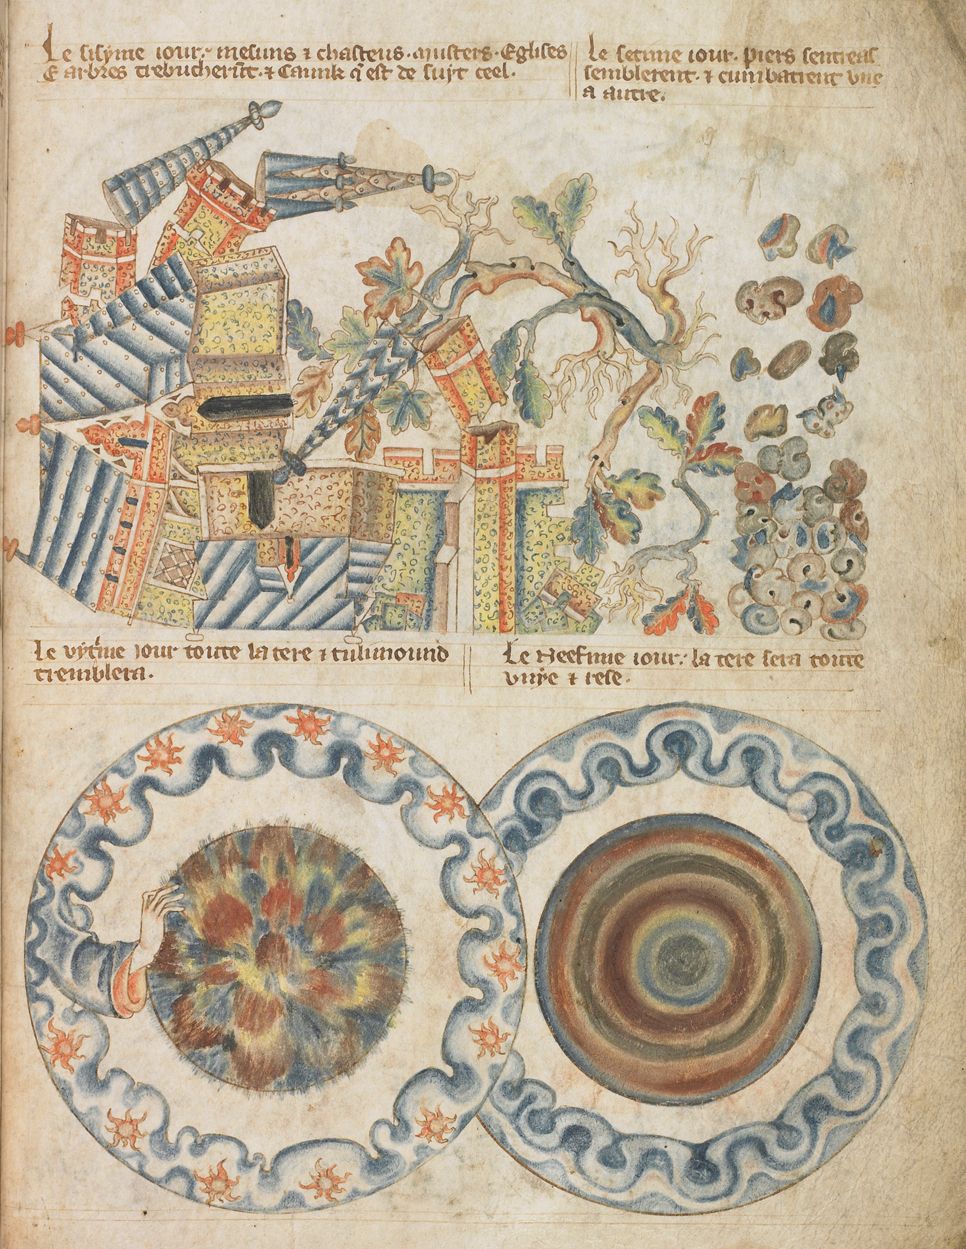 Le sisyme iour. mesuns & chasteus. musters. Eglises
E arbres trebucherunt. & Caunk q̄ est de suyt ceel.
Le setime iour. Piers sentreus
semblerent. & cumbatrent vne
a autre.
Le vytime iour toute la tere & tutmound
tremblera.
Le Neefme iour. la tere sera toute
vnye & rese.